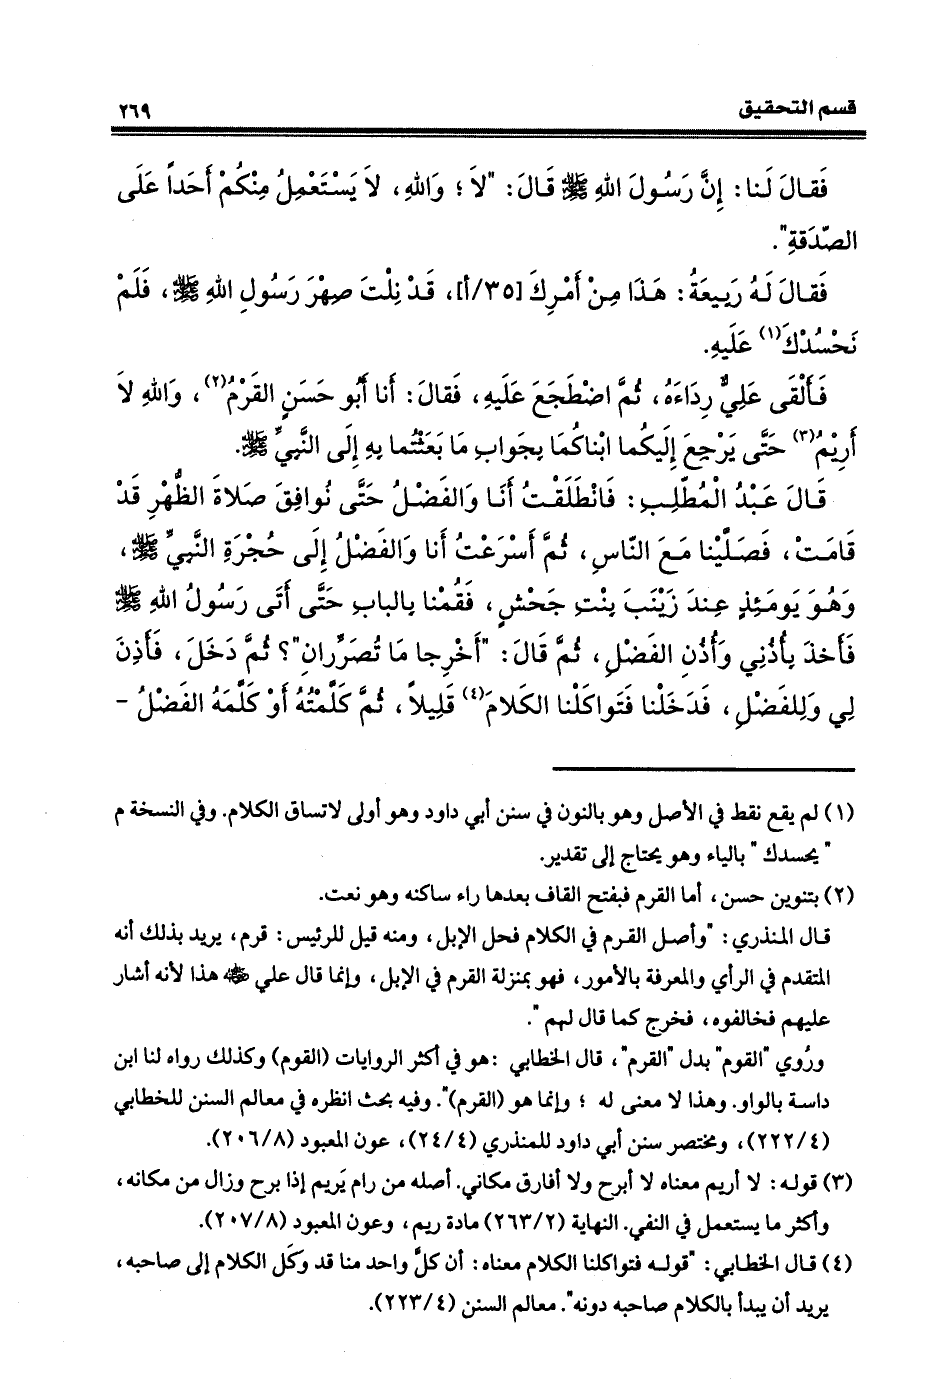 قسم التحقيق ٢٦٩
فَقالَ لَنا: إِنَّ رَسُولَ اللهِ ﷺ قَالَ: "لاَ ؛ وَاللهِ، لاَ يَسْتَعْمِلُ مِنْكُمْ أَحَداً عَلَى
الصّدَقةِ".
فَقالَ لَهُ رَبِيعَةُ: هَذَا مِنْ أَمْرِكَ [٣٥/أ]، قَدْ نِلْتَ صِهْرَ رَسُولِ اللهِ ﷺ، فَلَمْ
نَحْسُدْكَ(١) عَلَيهِ.
فَأَلْقَى عَلِيٌّ رِدَاءَهُ، ثُمَّ اضْطَجَعَ عَلَيهِ، فَقالَ: أَنا أَبُو حَسَنٍ القَرْمُ(٢)، وَاللهِ لاَ
أَرِيْمُ(٣) حَتَّى يَرْجِعَ إِلَيكُما ابْناكُمَا بِجَوابِ مَا بَعَثْتُما بِهِ إِلَى النَّبِيِّ ﷺ.
قَالَ عَبْدُ الْمُطَّلِبِ: فَانْطَلَقْتُ أَنَا وَالفَضْلُ حَتَّى نُوافِقَ صَلاَةَ الظُّهْرِ قَدْ
قامَتْ، فَصَلَّيْنا مَعَ النّاسِ، ثُمَّ أَسْرَعْتُ أَنا وَالفَضْلُ إِلَى حُجْرَةِ النَّبِيِّ ﷺ،
وَهُوَ يَومَئِذٍ عِندَ زَيْنَبَ بِنْتِ جَحْشٍ، فَقُمْنا بِالبابِ حَتَّى أَتَى رَسُولُ اللهِ ﷺ
فَأَخذَ بِأُذُنِي وَأُذُنِ الفَضْلِ، ثُمَّ قَالَ: "أَخْرِجا مَا تُصَرِّرانِ"؟ ثُمَّ دَخَلَ، فَأَذِنَ
لِي وَلِلفَضْلِ، فَدَخَلْنا فَتَواكَلْنا الكَلامَ(٤) قَلِيلاً، ثُمَّ كَلَّمْتُهُ أَوْ كَلَّمَهُ الفَضْلُ -
(١) لم يقع نقط في الأصل وهو بالنون في سنن أبي داود وهو أولى لاتساق الكلام. وفي النسخة م
"يحسدك" بالياء وهو يحتاج إلى تقدير.
(٢) بتنوين حسن، أما القرم فبفتح القاف بعدها راء ساكنه وهو نعت.
قال المنذري: "وأصل القرم في الكلام فحل الإبل، ومنه قيل للرئيس: قرم، يريد بذلك أنه
المتقدم في الرأي والمعرفة بالأمور، فهو بمنزلة القرم في الإبل، وإنما قال علي ﵁ هذا لأنه أشار
عليهم فخالفوه، فخرج كما قال لهم".
ورُوي "القوم" بدل "القرم"، قال الخطابي :هو في أكثر الروايات (القوم) وكذلك رواه لنا ابن
داسة بالواو. وهذا لا معنى له ؛ وإنما هو (القرم)". وفيه بحث انظره في معالم السنن للخطابي
(٢٢٢/٤)، ومختصر سنن أبي داود للمنذري (٢٤/٤)، عون المعبود (٢٠٦/٨).
(٣) قوله: لا أريم معناه لا أبرح ولا أفارق مكاني. أصله من رام يَريم إذا برح وزال من مكانه،
وأكثر ما يستعمل في النفي. النهاية (٢٦٣/٢) مادة ريم، وعون المعبود (٢٠٧/٨).
(٤) قال الخطابي: "قوله فتواكلنا الكلام معناه: أن كلَّ واحد منا قد وكَل الكلام إلى صاحبه،
يريد أن يبدأ بالكلام صاحبه دونه". معالم السنن (٢٢٣/٤).